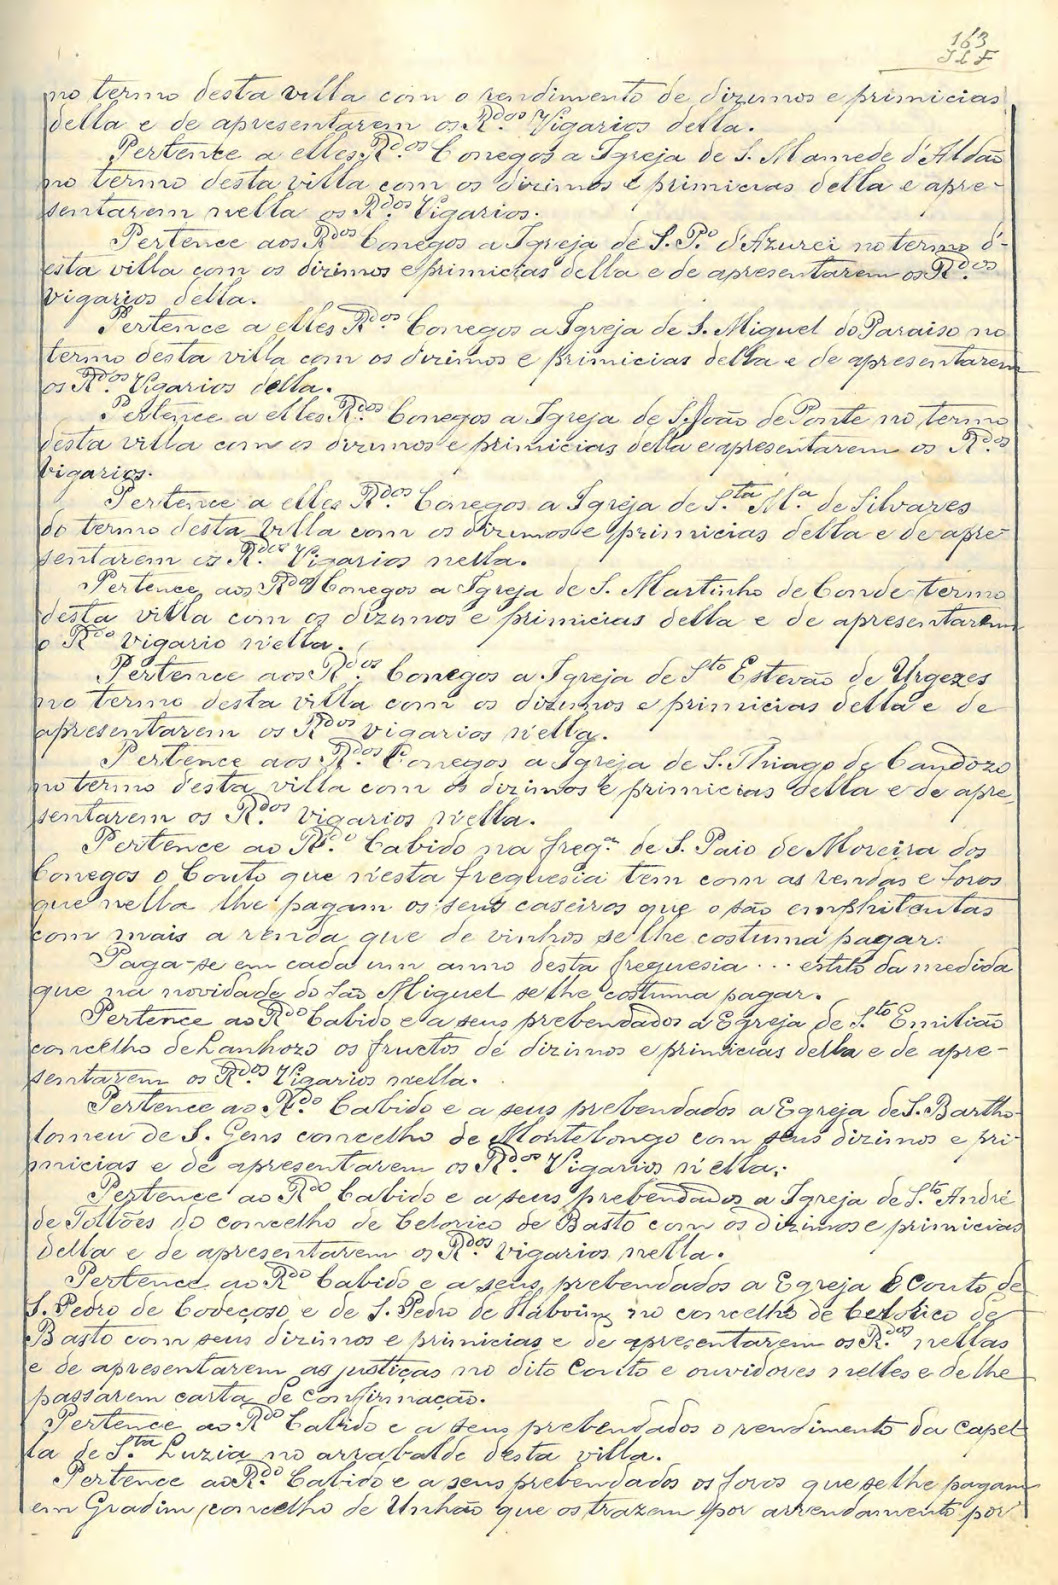 163
no termo desta villa com o rendimento de dizimos e primicias
della e de apresentarem os R.dos Vigarios della.
Pertence a elles R.dos Conegos a Igreja de S. Mamede d'Aldão
no termo desta villa com os dizimos e primicias della e apre-
sentarem nella os R.dos Vigarios.
Pertence aos R.dos Conegos a Igreja de S. P.o d'Azurei no termo d'-
esta villa com os dizimos e primicias della e de apresentarem os R.dos
vigarios della.
Pertence a elles R.dos Conegos a Igreja de S. Miguel do Paraiso no
termo desta villa com os dizimos e primicias della e de apresentarem
os R.dos Vigarios della.
Pertence a elles R.dos Conegos a Igreja de S. João de Ponte no termo
desta villa com os dizimos e primicias della e apresentarem os R.dos
Vigarios.
Pertence a elles R.dos Conegos a Igreja de S.ta M.a de Silvares
do termo desta villa com os dizimos e primicias della e de apre-
sentarem os R.dos Vigarios nella.
Pertence aos R.dos Conegos a Igreja de S. Martinho de Conde termo
desta villa com os dizimos e primicias della e de apresentarem
o R.do Vigario n'ella.
Pertence aos R.dos Conegos a Igreja de S.to Estevão de Urgezes
no termo desta villa com os dizimos e primicias della e de
apresentarem os R.dos vigarios n'ella.
Pertence aos R.dos Conegos a Igreja de S. Thiago de Candozo
no termo desta villa com os dizimos e primicias della e de apre-
sentarem os R.dos vigarios n'ella.
Pertence ao R.do Cabido na freg.a de S. Paio de Moreira dos
Conegos o Couto que n'esta freguesia tem com as rendas e foros
que nella lhe pagam os seus caseiros que o são emphiteutas
com mais a renda que de vinhos se lhe costuma pagar.
Paga-se em cada um anno desta freguesia ... estilo da medida
que na novidade do São Miguel se lhe costuma pagar.
Pertence ao R.do Cabido e a seus prebendados a Egreja de S.to Emilião
concelho de Lanhozo os fructos de dizimos e primicias della e de apre-
sentarem os R.dos Vigarios nella.
Pertence ao R.do Cabido e a seus prebendados a Egreja de S. Bartho-
lomeu de S. Gens concelho de Montelongo com seus dizimos e pri-
micias e de apresentarem os R.dos Vigarios n'ella.
Pertence ao R.do Cabido e a seus prebendados a Igreja de S.to André
de Tollões do concelho de Celorico de Basto com os dizimos e primicias
della e de apresentarem os R.dos vigarios nella.
Pertence ao R.do Cabido e a seus prebendados a Egreja e Couto de
S. Pedro de Codeçoso e de S. Pedro de no concelho de Celorico de
Basto com seus dizimos e primicias e de apresentarem os R.dos nellas
e de apresentarem as justiças no dito Couto e ouvidores nelles e de lhe
passarem carta de confirmação.
Pertence ao R.do Cabido e a seus prebendados o rendimento da capel-
la de S.ta Luzia no arrabalde desta villa.
Pertence ao R.do Cabido e a seus prebendados os foros que se lhe pagam
em Gradim concelho de Unhão que os trazem por arrendamento por